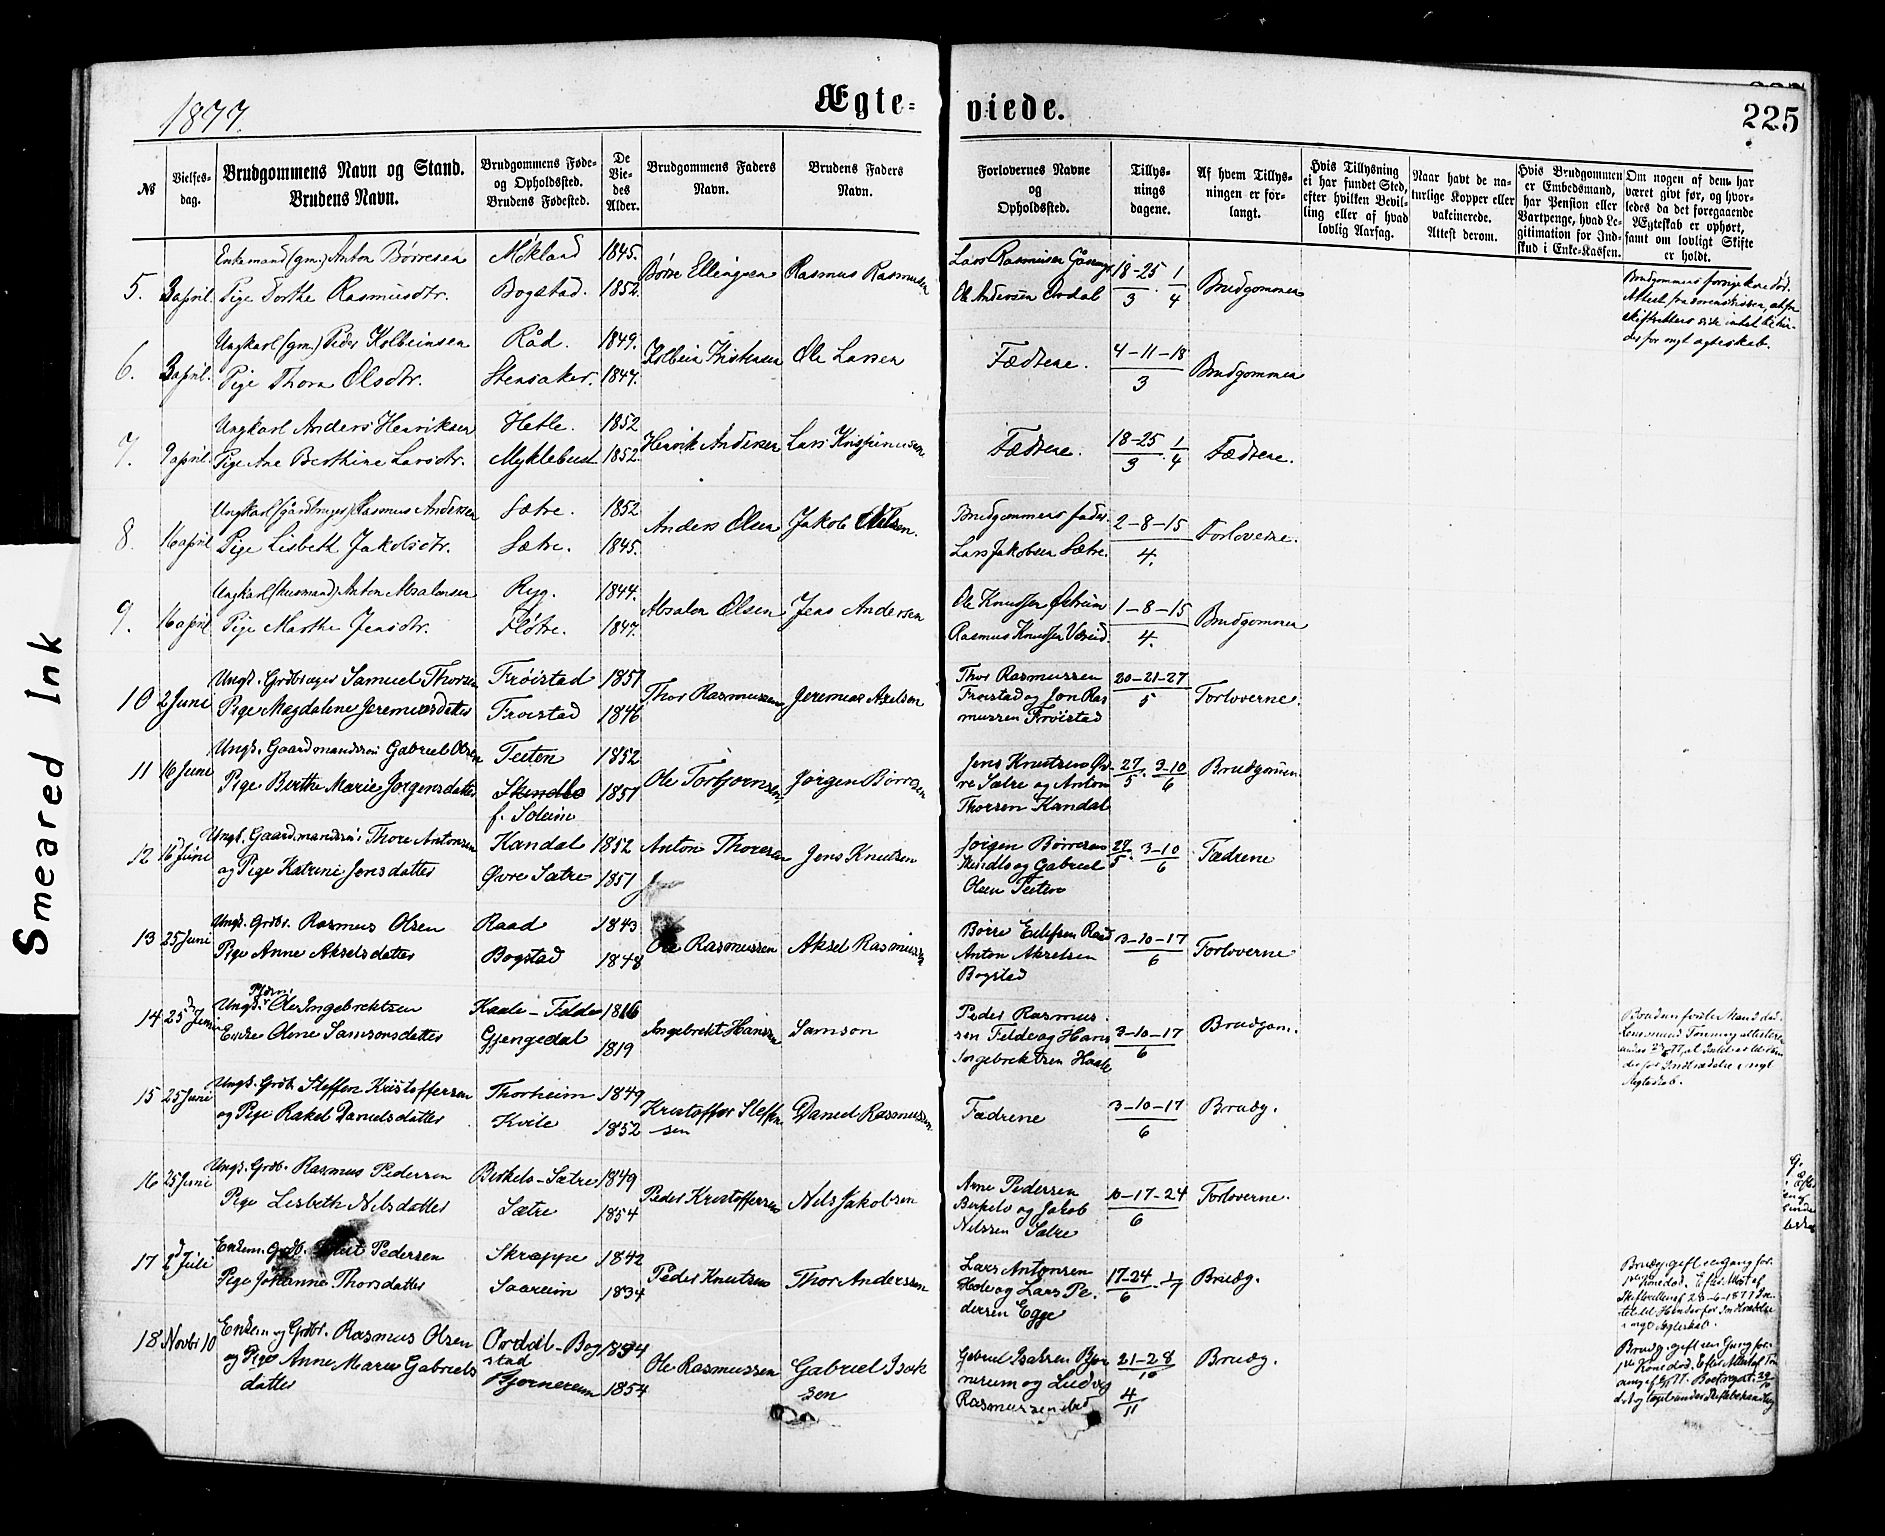 1877.
Ægte=
viede.
225
№
Vielses-
dag.
Brudgommens Navn og Stand.
Brudens Navn.
Brudgommens Føde-
og Opholdssted.
Brudens Fødested.
De
Vie-
des
Alder.
Brudgommens Faders
Navn.
Brudens Faders
Navn.
Forlovernes Navne
og
Opholdssted.
Tillys-
nings
dagene.
Af hvem Tillys-
ningen er for-
langt.
Hvis Tillysning
ei har fundet Sted,
efter hvilken Bevil-
ling eller af hvad
lovlig Aarsag.
Naar havt de na-
turlige Kopper eller
vakcinerede.
Attest derom.
Hvis Brudgommen
er Embedsmand,
har Pension eller
Vartpenge, hvad Le-
gitimation for Ind-
skud i Enke-Kassen.
Om nogen af dem har
været givt før, og hvor-
ledes da det foregaaende
Ægteskab er ophørt,
samt om lovligt Skifte
er holdt.
5. 3 april. Enkemand (gm.) Anton Børresen Mökland 1845.
Pige Dorthe Rasmusdtr. Bogstad. 1852.
Børre Ellingsen Rasmus Rasmussen
Lars Rasmusen
Ole Andersen Ordal
18-25/3 . 1/4 Brudgommen
Brudgommens forrige kone död.
6. 3 april. Ungkarl (gm.) Peder Kolbeinsen Råd. 1849.
Pige Thora Olsdtr. Stensaker. 1847.
Kolbein Kristensen Ole Larsen
Fædrene. 4-11-18/3 Brudgommen
7. 9 april. Ungkarl Anders Henriksen Hetle. 1852
Pige Ane Berthine Larsdtr. Myklebust 1852.
Henrik Andersen Lars Krispinussen
Fædrene. 18-25/3 . 1/4 Fædrene.
8. 16 april Ungkarl (gårdbruger) Rasmus Andersen Sætre. 1852
Pige Lisbeth Jakobsdtr. Sætre. 1845.
Anders Olsen Jakob Nilsen.
Brudgommens fader.
Lars Jakobsen Sætre.
2-8-15/4. Forloverne.
9. 16 april Ungkarl (husmand) Anton Absalonsen Ryg. 1844.
Pige Marthe Jensdtr. Flötre. 1847.
Absalon Olsen Jens Andersen
Ole Knudsen
Rasmus Knudsen
1-8-15/4. Brudgommen
10 2 Juni Ungk. Grdbruger Samuel Thorsen Frøistad 1851
Pige Magdalene Jeremiasdatter Frøistad 1846
Thor Rasmussen Jeremias Axelsen
Thor Rasmussen
Frøistad og Jon Ras
mussen Frøistad
20-21-27/5 Forloverne.
11 16 Juni Ungk. Gaardmandssøn Gabriel Olsen Teiten 1852
Pige Berthe Marie Jørgensdatter 1851
f. Soleim
Ole Torbjørnsen Jørgen Børresen
Jens Knutsen Øv-
re Sætre og Anton
Thorsen Kandal
27/5 . 3-10/6 Brudgommen
12 16 Juni Ungk. Gaardmandssøn Thore Antonsen Kandal 1852
og Pige Katrine Jensdatter Øvre Sætre 1851
Anton Thoresen Jens Knutsen
Jørgen Børresen
og Gabriel
Olsen Teiten
27/5 . 3-10/6 Fædrene
13 25 Juni Ungk. Grdbr. Rasmus Olsen Raad 1843
Pige Anne Akselsdatter Bogstad 1848
Ole Rasmussen Aksel Rasmussen
Børre Ellefsen Raad
Anton Akselsen
Bogstad
3-10-17/6 Forloverne
14 25 Juni Ungk. Ole Ingebrektsen Haale-Felde 1816
Enke Oline Samsonsdatter Gjengedal 1819
Ingebrekt Hansen Samson
Peder Rasmus-
sen Felde og Hans
Ingebrektsen Haale
3-10-17/6 Brudgom.
Brudens første Mand död.
15 25 Juni Ungk. Grdb. Steffen Kristoffersen Thorheim 1849
og Pige Rakel Danielsdatter Kvile 1852
Kristoffer Steffen
sen
Daniel Rasmussen
Fædrene 3-10-17/6 Brudg.
16 25 Juni Ungk. Grdb. Rasmus Pedersen Birkelo-Sætre 1849
Pige Lisbeth Nilsdatter Sætre 1854
Peder Kristoffersen Nils Jakobsen
Arne Pedersen
Birkelo og Jakob
Nilssen Sætre
10-17-24/6 Forloverne.
17 2 Juli Enkem. Grdb. Pedersen Skrøppe 1842
Pige Johanne Thorsdatter Saareim 1834
Peder Knutsen Thor Anderssen
Lars Antonsen
og Lars Pe-
dersen Egge
17-24/6 . 1/7 Brudg.
Brudg. gift engang før.
18 Novbr 10 Enkem og Grdbr. Rasmus Olsen Ordal-Bog
stad
1834
og Pige Anne Marie Gabriels
datter
Bjørnereim 1854
Ole Rasmussen Gabriel Isak
sen
Gabriel Isaksen Bjør
nereim og Ludvig
Rasmussen
21-28/10 Brudg.
4/11
Brudg. gift een Gang før.
Smeared Ink